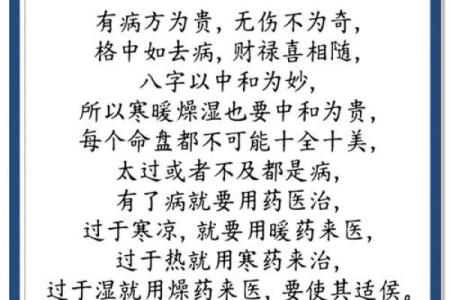 有病方为贵，无伤不为奇，
格中如去病，财禄喜相随，
八字以中和为妙，
所以寒暖燥湿也要中和为贵，
每个命盘都不可能十全十美，
太过或者不及都是病，
有了病就要用药医治，
过于寒凉，就要用暖药来医，
过于热就用寒药来治，
过于湿就用燥药来医，要使其适侯。